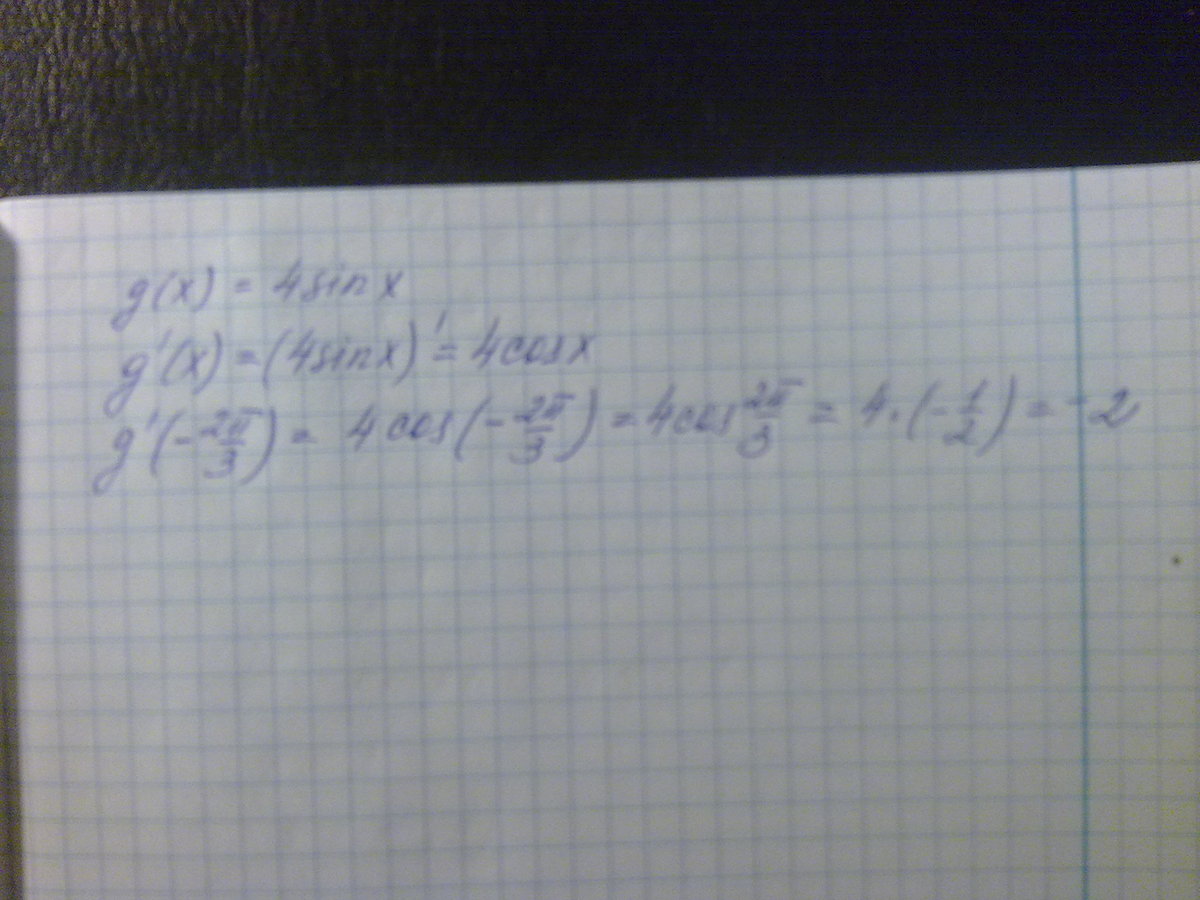 g(x) = 4sinx
g'(x) = (4sinx)' = 4cosx
g'(-2π/3) = 4cos(-2π/3) = 4cos 2π/3 = 4·(-1/2) = -2